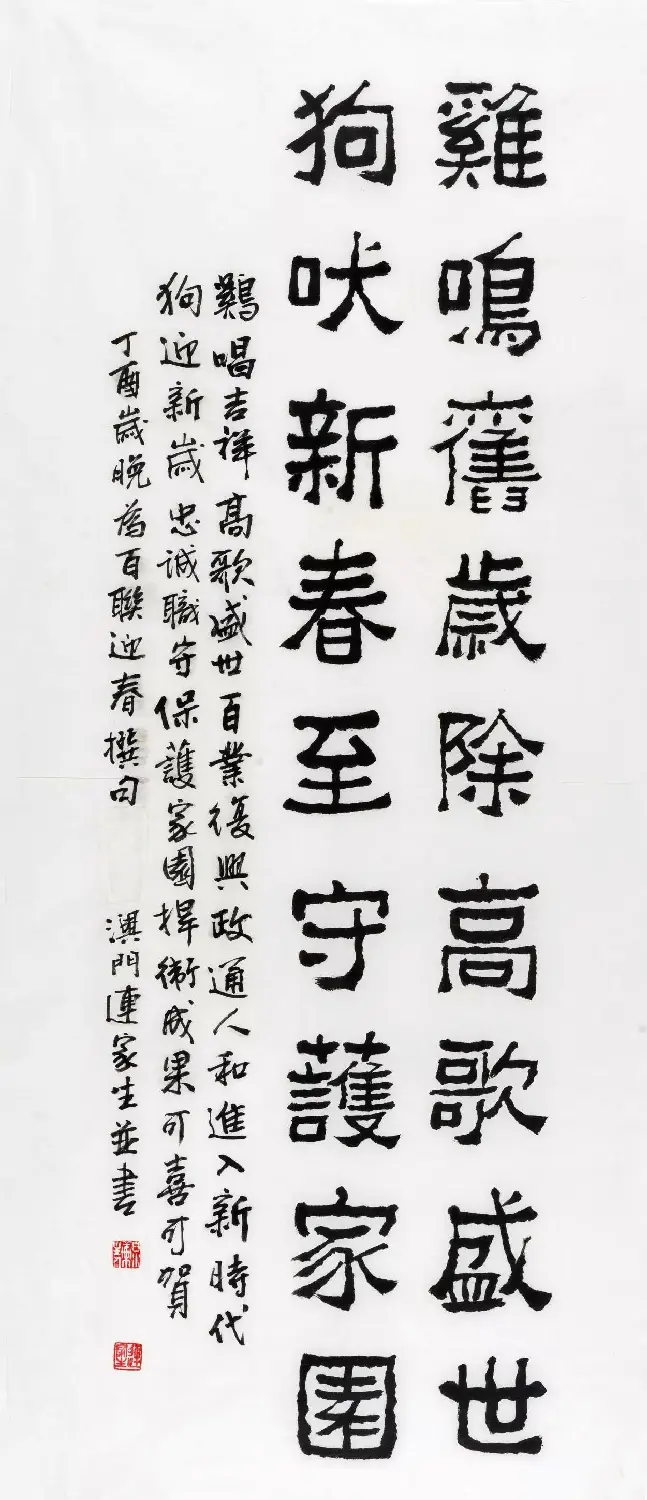 雞鳴舊歲除高歌盛世
狗吠新春至守護家園
鷄唱吉祥高歌盛世百業復興政通人和進入新時代
狗迎新歲忠誠職守保護家園捍衛成果可喜可賀
丁酉歲晚為百聯迎春撰句 澳門連家生並書